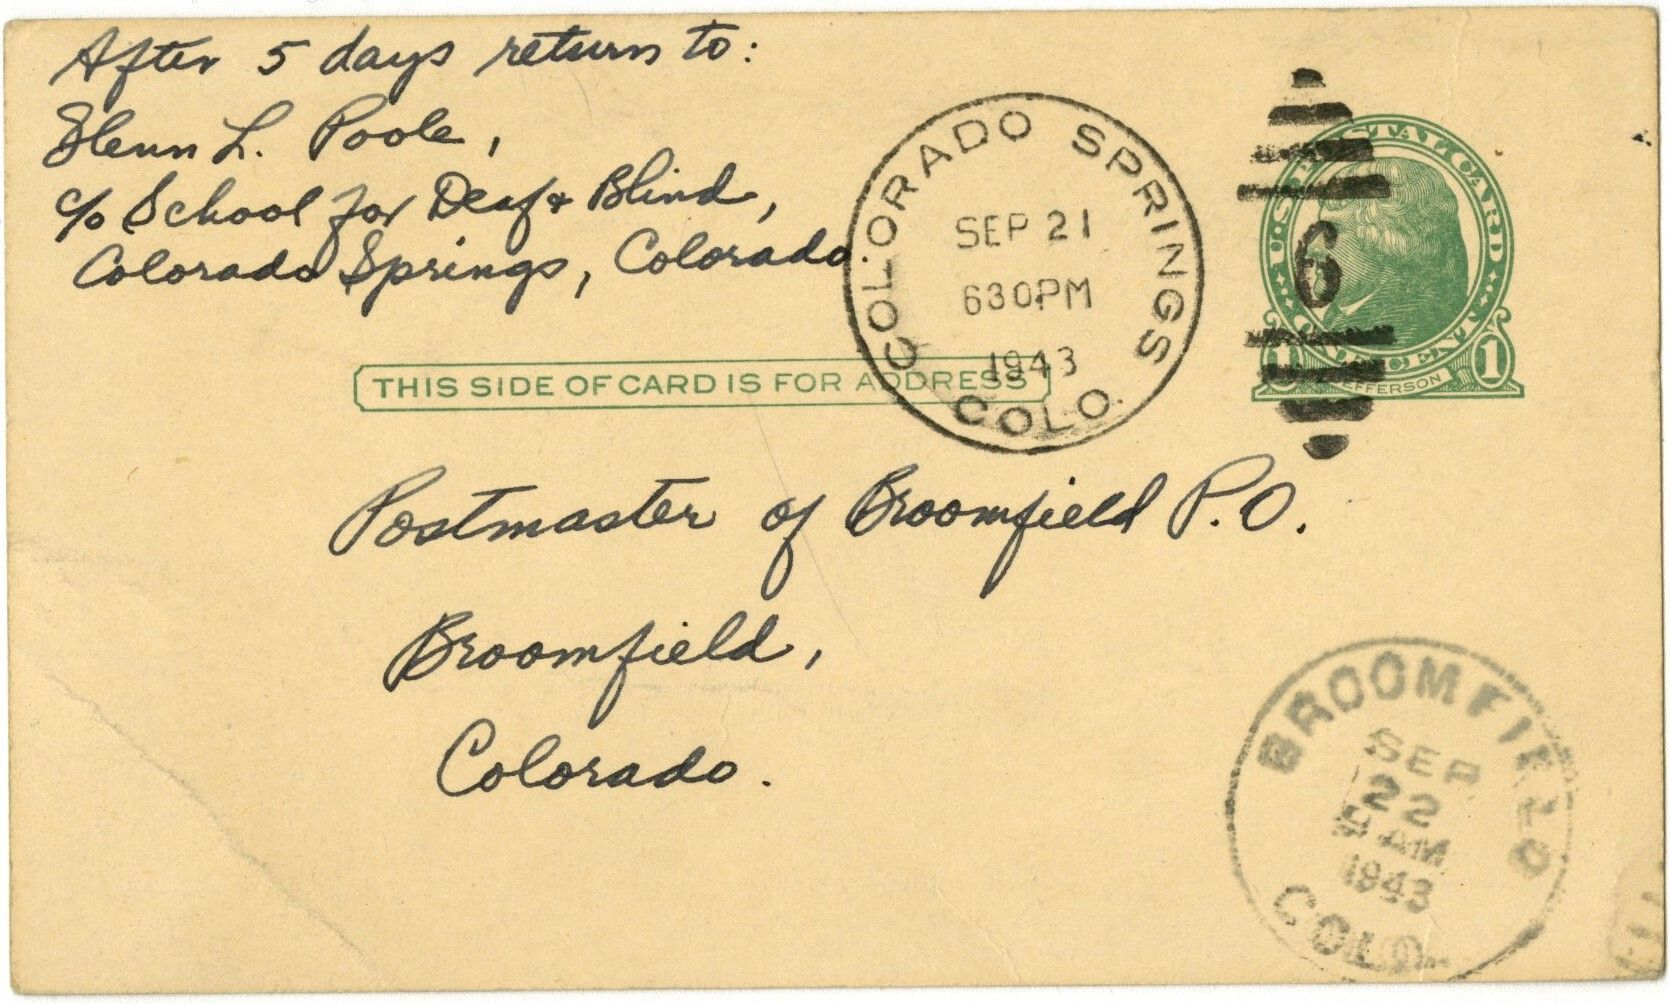 After 5 days return to:
Glenn L. Poole,
c/o School for Deaf & Blind,
Colorado Springs, Colorado.
COLORADO SPRINGS
SEP 21
630PM
1943
COLO.
U.S. POSTAL CARD
6
1 ONE CENT 1
JEFFERSON
THIS SIDE OF CARD IS FOR ADDRESS
Postmaster of Broomfield P.O.
Broomfield,
Colorado.
BROOMFIELD
SEP
22
AM
1943
COLO.